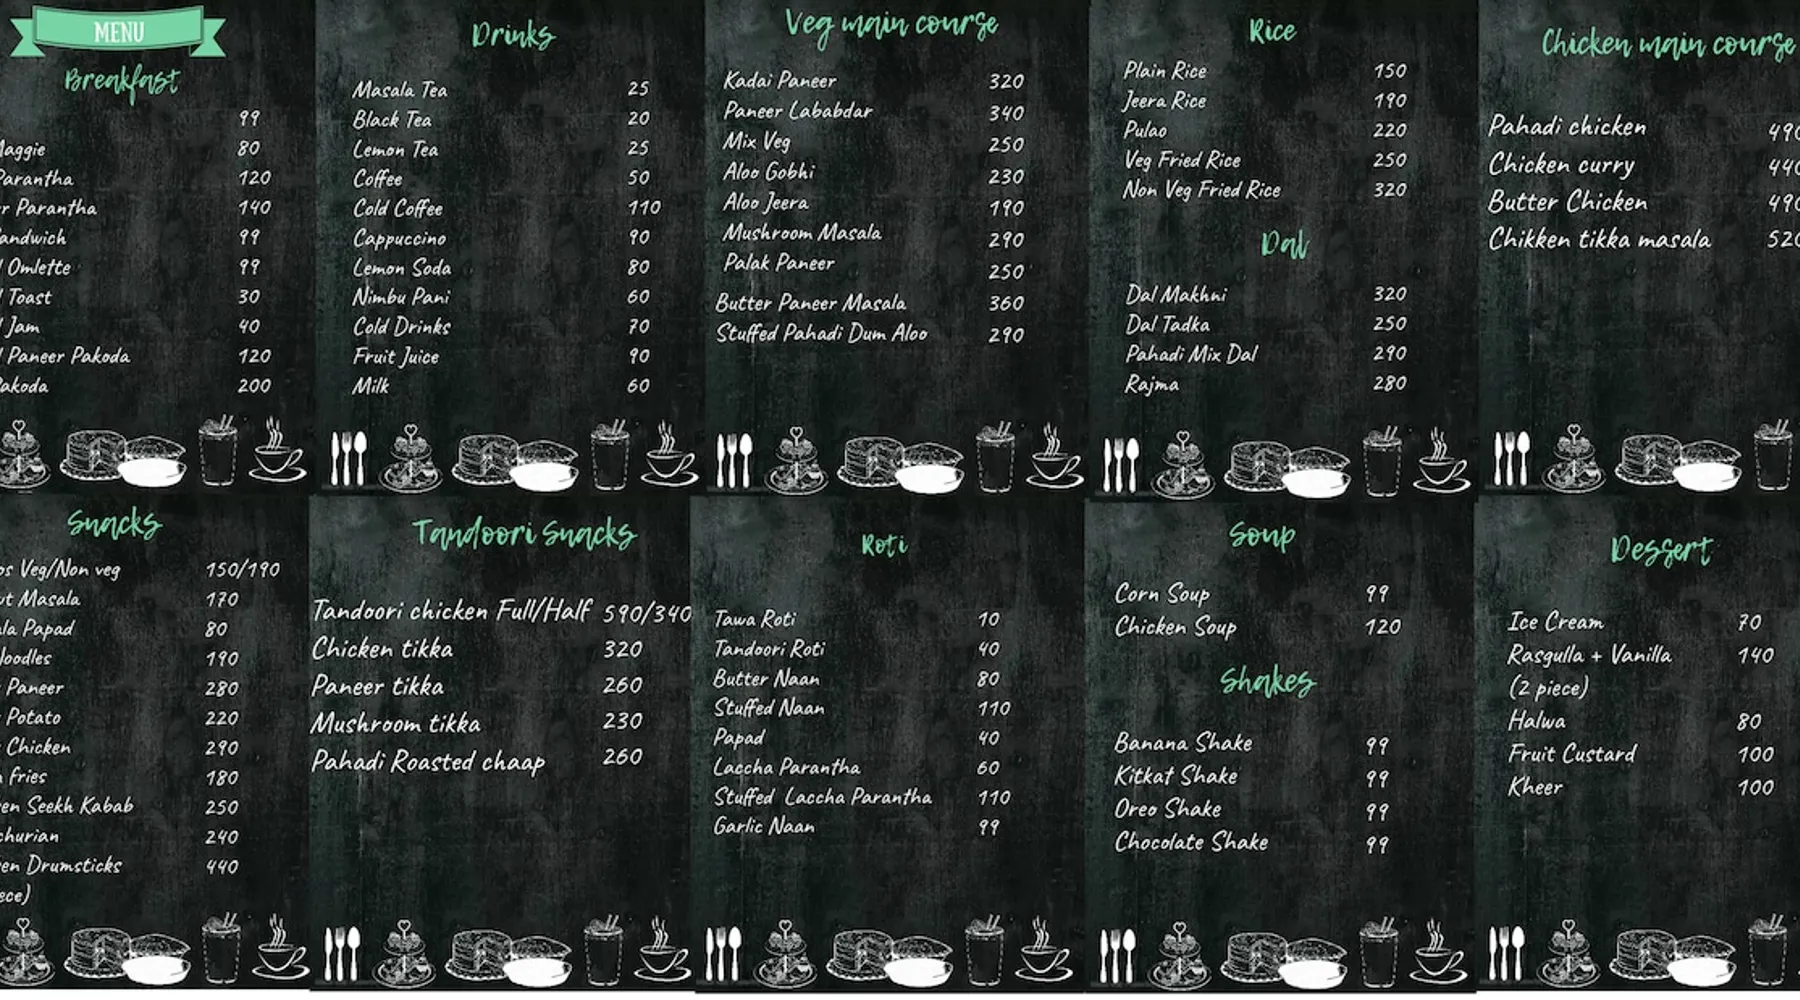 MENU
Breakfast
99
Maggie 80
Parantha 120
r Parantha 140
andwich 99
Omlette 99
Toast 30
Jam 40
Paneer Pakoda 120
Pakoda 200
Drinks
Masala Tea 25
Black Tea 20
Lemon Tea 25
Coffee 50
Cold Coffee 110
Cappuccino 90
Lemon Soda 80
Nimbu Pani 60
Cold Drinks 70
Fruit Juice 90
Milk 60
Veg main course
Kadai Paneer 320
Paneer Lababdar 340
Mix Veg 250
Aloo Gobhi 230
Aloo Jeera 190
Mushroom Masala 290
Palak Paneer 250
Butter Paneer Masala 360
Stuffed Pahadi Dum Aloo 290
Rice
Plain Rice 150
Jeera Rice 190
Pulao 220
Veg Fried Rice 250
Non Veg Fried Rice 320
Dal
Dal Makhni 320
Dal Tadka 250
Pahadi Mix Dal 290
Rajma 280
Chicken main course
Pahadi chicken 490
Chicken curry 440
Butter Chicken 490
Chikken tikka masala 520
Snacks
os Veg/Non veg 150/190
ut Masala 170
la Papad 80
Noodles 190
Paneer 280
Potato 220
Chicken 290
fries 180
en Seekh Kabab 250
churian 240
en Drumsticks 440
ece)
Tandoori snacks
Tandoori chicken Full/Half 590/340
Chicken tikka 320
Paneer tikka 260
Mushroom tikka 230
Pahadi Roasted chaap 260
Roti
Tawa Roti 10
Tandoori Roti 40
Butter Naan 80
Stuffed Naan 110
Papad 40
Laccha Parantha 60
Stuffed Laccha Parantha 110
Garlic Naan 99
Soup
Corn Soup 99
Chicken Soup 120
Shakes
Banana Shake 99
Kitkat Shake 99
Oreo Shake 99
Chocolate Shake 99
Dessert
Ice Cream 70
Rasgulla + Vanilla 140
(2 piece)
Halwa 80
Fruit Custard 100
Kheer 100